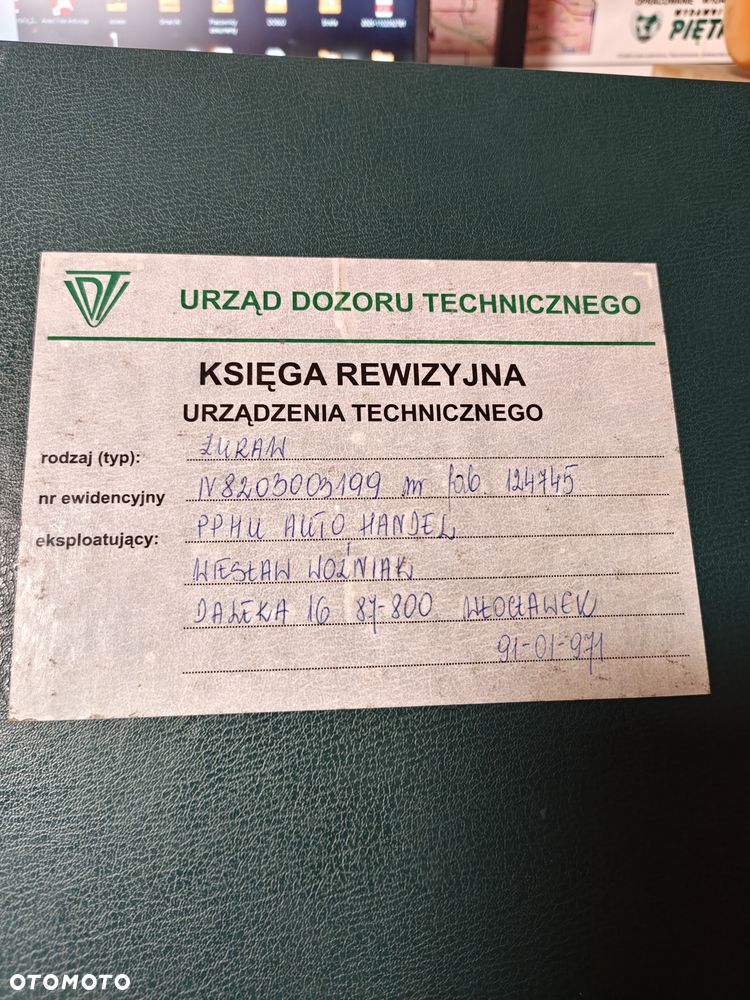 WYDAWNI
PIĘT
UDT
URZĄD DOZORU TECHNICZNEGO
KSIĘGA REWIZYJNA
URZĄDZENIA TECHNICZNEGO
rodzaj (typ): ŻURAW
nr ewidencyjny N8203003199 nr fab. 124745
eksploatujący: PPHU AUTO HANDEL
WIESŁAW WOŹNIAK
DALEKA 16 87-800 WŁOCŁAWEK
91-01-971
OTOMOTO